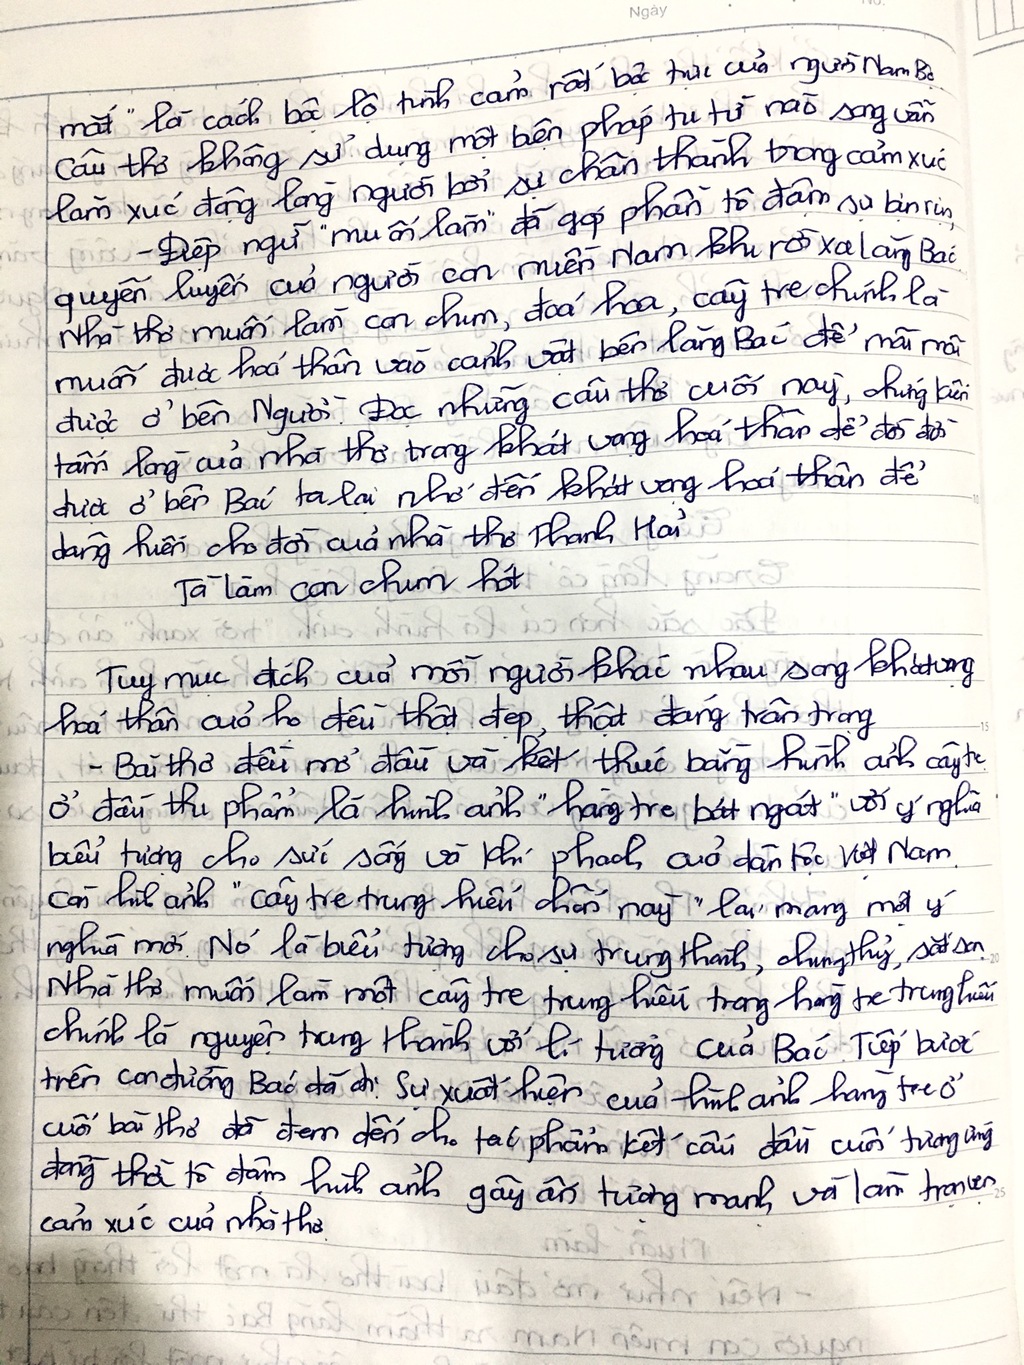 Ngày No.
mắt" là cách bộc lộ tình cảm rất bộc trực của người Nam Bộ
Câu thơ không sử dụng một biện pháp tu từ nào song vẫn
làm xúc động lòng người bởi sự chân thành trong cảm xúc
- Điệp ngữ "muốn làm" đã góp phần tô đậm sự bịn rịn,
quyến luyến của người con miền Nam khi rời xa lăng Bác
Nhà thơ muốn làm con chim, đoá hoa, cây tre chính là
muốn được hoá thân vào cảnh vật bên lăng Bác để mãi mãi
được ở bên Người. Đọc những câu thơ cuối này, chứng kiến
tấm lòng của nhà thơ trong khát vọng hoá thân để đời đời
được ở bên Bác ta lại nhớ đến khát vọng hoá thân để
dâng hiến cho đời của nhà thơ Thanh Hải
Ta làm con chim hót
Tuy mục đích của mỗi người khác nhau song khát vọng
hoá thân của họ đều thật đẹp, thật đáng trân trọng
- Bài thơ đều mở đầu và kết thúc bằng hình ảnh cây tre.
Ở đầu thi phẩm là hình ảnh "hàng tre bát ngát" với ý nghĩa
biểu tượng cho sức sống và khí phách của dân tộc Việt Nam.
Còn hình ảnh "cây tre trung hiếu chốn này" lại mang một ý
nghĩa mới. Nó là biểu tượng cho sự trung thành, chung thuỷ, sắt son.
Nhà thơ muốn làm một cây tre trung hiếu trong hàng tre trung hiếu
chính là nguyện trung thành với lí tưởng của Bác. Tiếp bước
trên con đường Bác đã đi. Sự xuất hiện của hình ảnh hàng tre ở
cuối bài thơ đã đem đến cho tác phẩm kết cấu đầu cuối tương ứng
đồng thời tô đậm hình ảnh gây ấn tượng mạnh và làm trọn vẹn
cảm xúc của nhà thơ.